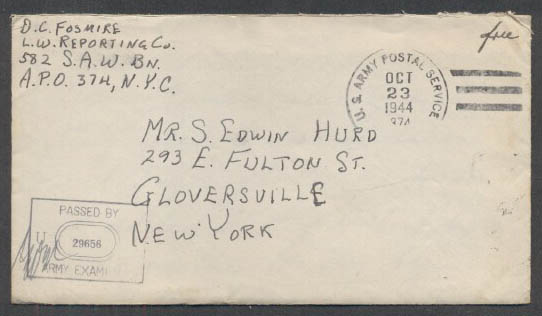 D.C. FOSMIRE
L.W. REPORTING CO.
582 S.A.W. BN.
A.P.O. 374, N.Y.C.
free
U.S. ARMY POSTAL SERVICE
OCT
23
1944
374
MR. S. EDWIN HURD
293 E. FULTON ST.
GLOVERSVILLE
NEW YORK
PASSED BY
U
29656
ARMY EXAMI